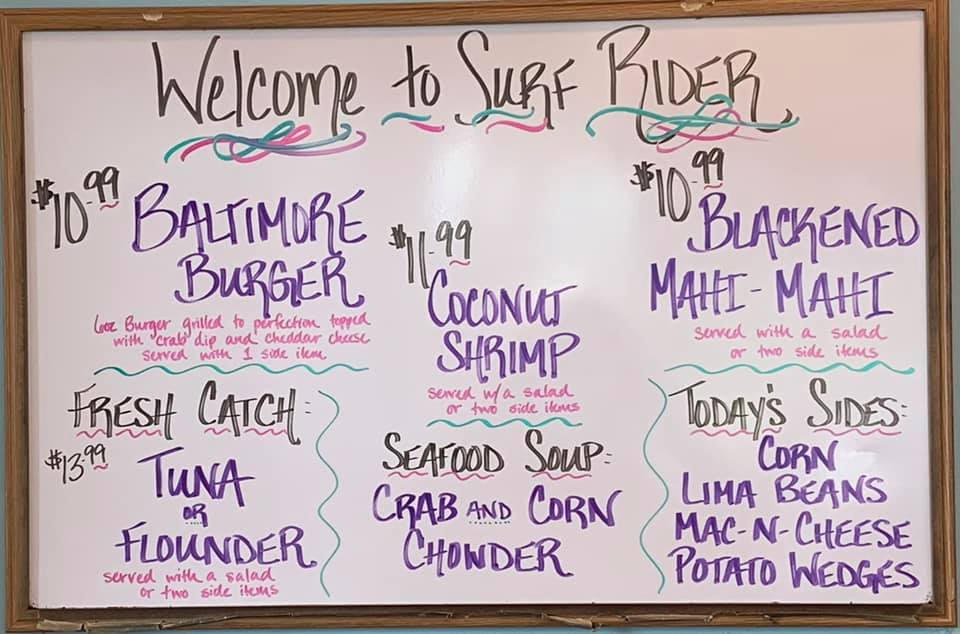 Welcome to Surf Rider
$10.99 Baltimore
Burger
6oz Burger grilled to perfection topped
with crab dip and cheddar cheese
served with 1 side item
$11.99
Coconut
Shrimp
served w/a salad
or two side items
$10.99
Blackened
Mahi-Mahi
served with a salad
or two side items
Fresh Catch:
$13.99
Tuna
or
Flounder
served with a salad
or two side items
Seafood Soup:
Crab and Corn
Chowder
Today's Sides:
Corn
Lima Beans
Mac-N-Cheese
Potato Wedges